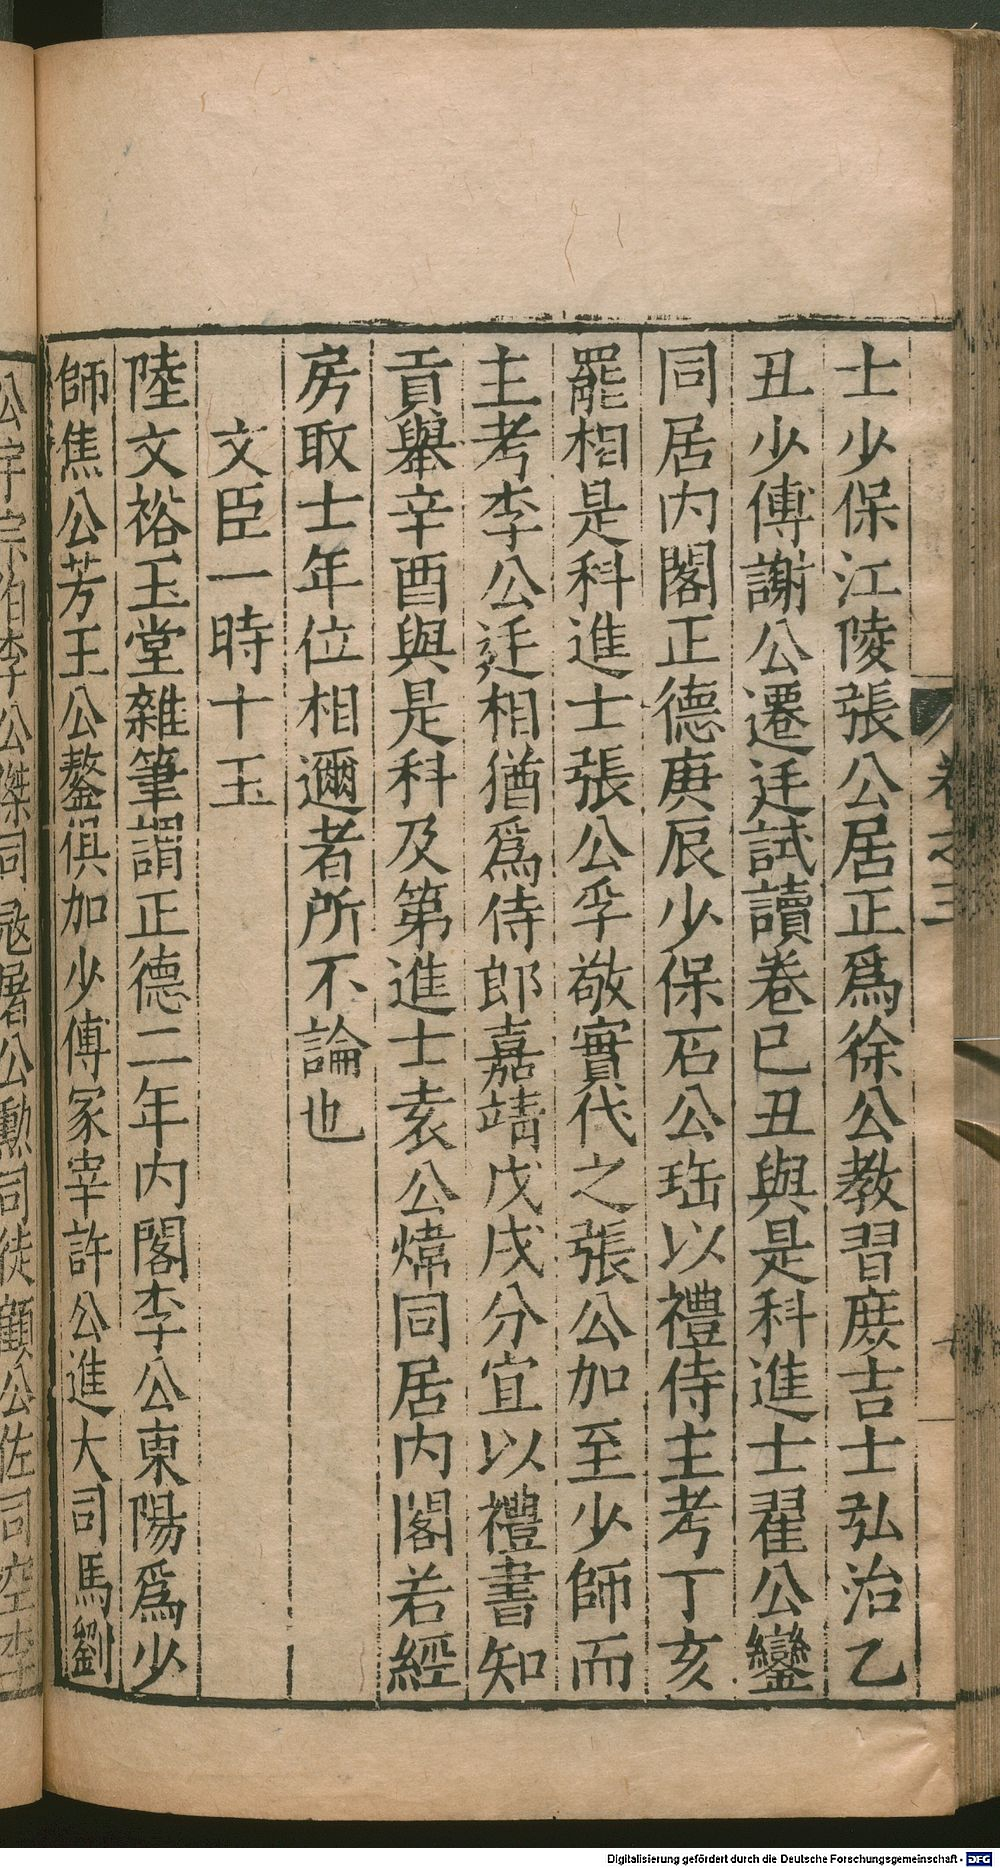 士少保江陵張公居正爲徐公教習庻吉士弘治乙
丑少傅謝公遷廷試讀卷巳丑與是科進士翟公鑾
同居内閣正德庚辰少保石公珤以禮侍主考丁亥
罷相是科進士張公孚敬實代之張公加至少師而
主考李公廷相猶爲侍郎嘉靖戊戌分宜以禮書知
貢舉辛酉與是科及第進士袁公煒同居内閣若經
房取士年位相邇者所不論也
文臣一時十玉
陸文裕玉堂雜筆謂正德二年内閣李公東陽爲少
師焦公芳王公鏊俱加少傅冢宰許公進大司馬劉
公宇宗伯李公傑司寇屠公勳司徒顧公佐司空李
卷之三
Digitalisierung gefördert durch die Deutsche Forschungsgemeinschaft - DFG